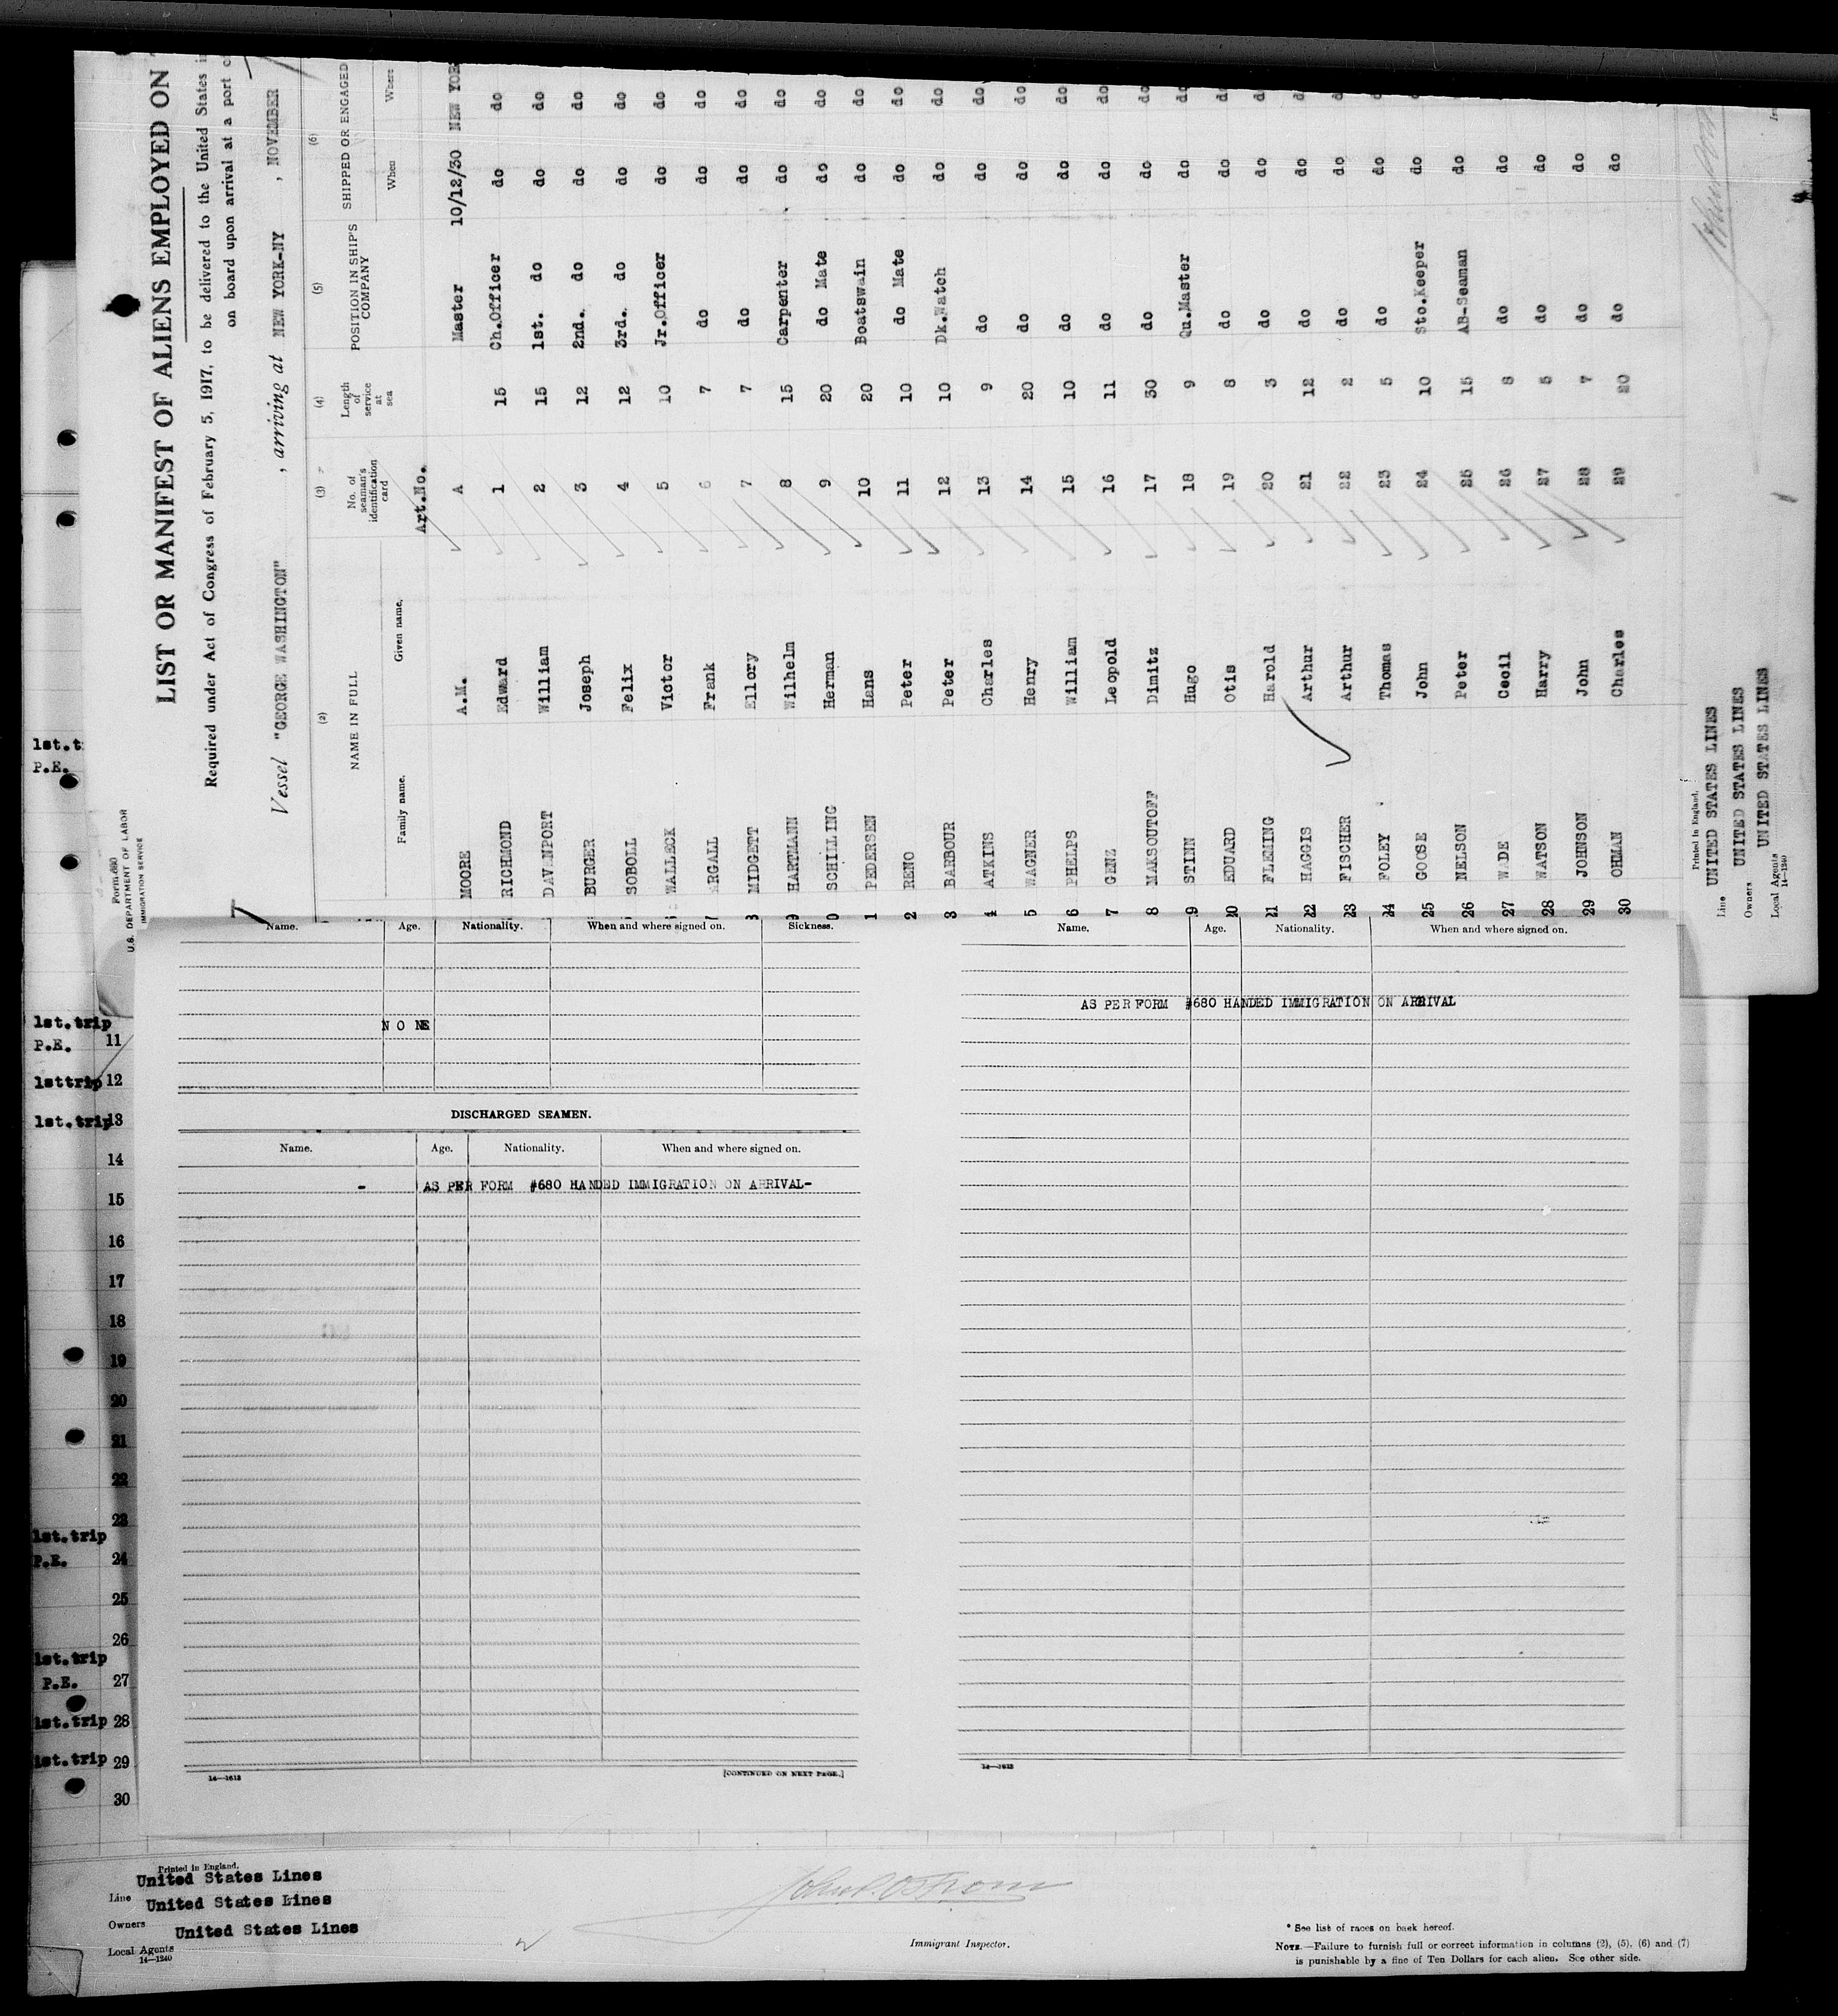 Form 680
U.S. DEPARTMENT OF LABOR
IMMIGRATION SERVICE
LIST OR MANIFEST OF ALIENS EMPLOYED ON
Required under Act of Congress of February 5, 1917, to be delivered to the United States
on board upon arrival at a port
Vessel "GEORGE WASHINGTON" , arriving at NEW YORK-NY , NOVEMBER
(2) (3) (4) (5) (6)
NAME IN FULL No. of seaman's identification card Length of service at sea POSITION IN SHIP'S COMPANY SHIPPED OR ENGAGED
Family name. Given name. When Where
Art.No.
MOORE A.M. A Master 10/12/30 NEW YOR
RICHMOND Edward 1 15 Ch.Officer do do
DAVENPORT William 2 15 1st. do do do
BURGER Joseph 3 12 2nd. do do do
SOBOLL Felix 4 12 3rd. do do do
WALLECK Victor 5 10 Jr.Officer do do
ARGALL Frank 6 7 do do do
MIDGETT Ellory 7 7 do do do
HARTMANN Wilhelm 8 15 Carpenter do do
SCHILLING Herman 9 20 do Mate do do
1 PEDERSEN Hans 10 20 Boatswain do do
2 RENO Peter 11 10 do Mate do do
3 BARBOUR Peter 12 10 Dk.Watch do do
4 ATKINS Charles 13 9 do do do
5 WAGNER Henry 14 20 do do do
6 PHELPS William 15 10 do do do
7 GENZ Leopold 16 11 do do do
8 MAKSOUTOFF Dimitz 17 30 do do do
19 STINN Hugo 18 9 Qu.Master do do
20 EDUARD Otis 19 8 do do do
21 FLEMING Harold 20 3 do do do
22 HAGGIS Arthur 21 12 do do do
23 FISCHER Arthur 22 2 do do do
24 FOLEY Thomas 23 5 do do do
25 GOOSE John 24 10 Sto.Keeper do do
26 NELSON Peter 25 15 AB-Seaman do do
27 WADE Cecil 26 8 do do
28 WATSON Harry 27 5 do do
29 JOHNSON John 28 7 do do
30 OHMAN Charles 29 20 do do
Printed in England.
Line UNITED STATES LINES
Owners UNITED STATES LINES
Local Agents UNITED STATES LINES
14—1240
Name. Age. Nationality. When and where signed on. Sickness.
NONE
DISCHARGED SEAMEN.
Name. Age. Nationality. When and where signed on.
- AS PER FORM #680 HANDED IMMIGRATION ON ARRIVAL-
14—1613 [CONTINUED ON NEXT PAGE.]
Name. Age. Nationality. When and where signed on.
AS PER FORM #680 HANDED IMMIGRATION ON ARRIVAL
14—1613
1st.t
P.E.
1st.trip
P.E. 11
1sttrip 12
1st.trip 13
14
15
16
17
18
19
20
21
22
23
1st.trip
P.E. 24
25
26
1st.trip
P.E. 27
1st.trip 28
1st.trip 29
30
Printed in England.
Line United States Lines
Owners United States Lines
Local Agents United States Lines
14—1240
John P. Ostrom
Immigrant Inspector.
* See list of races on back hereof.
NOTE.—Failure to furnish full or correct information in columns (2), (5), (6) and (7)
is punishable by a fine of Ten Dollars for each alien. See other side.